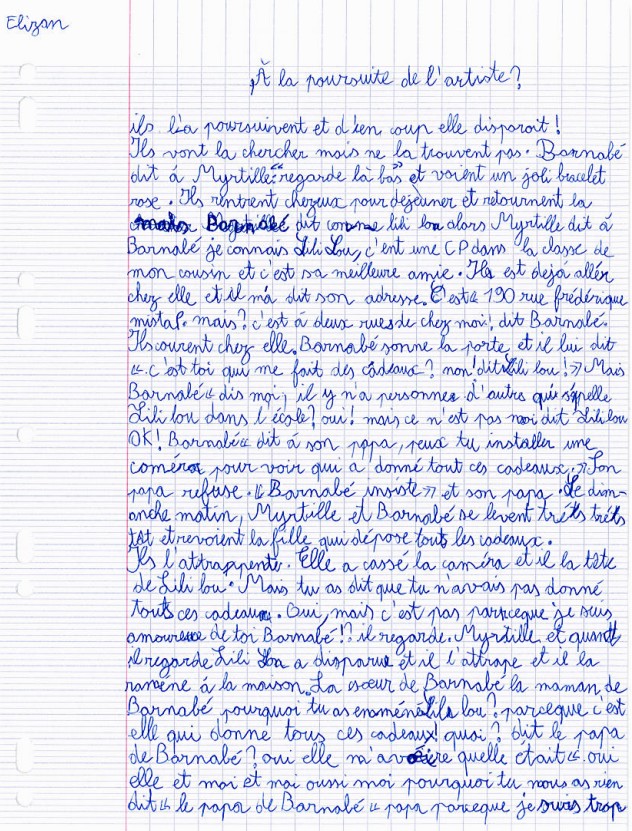 Elizan
À la poursuite de l'artiste?
ils l'a poursuivent et d'en coup elle disparait !
Ils vont la chercher mais ne la trouvent pas. Barnabé
dit á Myrtille: "regarde là bas" et voient un joli bracelet
rose. Ils rentrent chezeux pour déjeuner et retournent la
Barnabé dit comme lili lou alors Myrtille dit á
Barnabé je connais Lili Lou, c'ent une CP dans la classe de
mon cousin et c'est sa meilleure amie. Ils est dejá allér
chez elle et il m'á dit son adresse. C'est « 190 rue frédérique
mistal. mais? c'est á deux rues de chez moi! dit Barnabé.
Ils courent chez elle. Barnabé sonne la porte et il lui dit
« c'est toi qui me fait des cadeaux? non! dit Lili lou! » Mais
Barnabé « dis moi, il y n'a personnes d'autres qui s'apelle
Lili lou dans l'école? oui! mais ce n'est pas moi dit Lili lou
OK! Barnabé « dit á son papa, peux tu installer une
caméra pour voir qui a donné tout ces cadeaux. » Son
papa refuse. « Barnabé insiste » et son papa. Le dim-
anche matin, Myrtille et Barnabé se levent tréts tréts
tôt et revoient la fille qui dépose touts les cadeaux.
Ils l'attrappents. Elle a cassé la caméra et il la tète
de Lili lou. Mais tu as dit que tu n'avais pas donné
touts ces cadeaux. Oui, mais c'est pas parceque je suis
amoureuse de toi Barnabé!? il regarde. Myrtille et quant
il regarde Lili Lou a disparue et il l'attrape et il la
raméne á la maison. La soeur de Barnabé la maman, de
Barnabé pourquoi tu as enoméné Lili lou? parceque c'est
elle qui donne tous ces cadeaux! quoi? dit le papa
de Barnabé? oui elle m'a quelle etait « oui
elle et moi et moi aussi moi pourquoi tu nous as rien
dit « le papa de Barnabé « papa parceque je suis trop